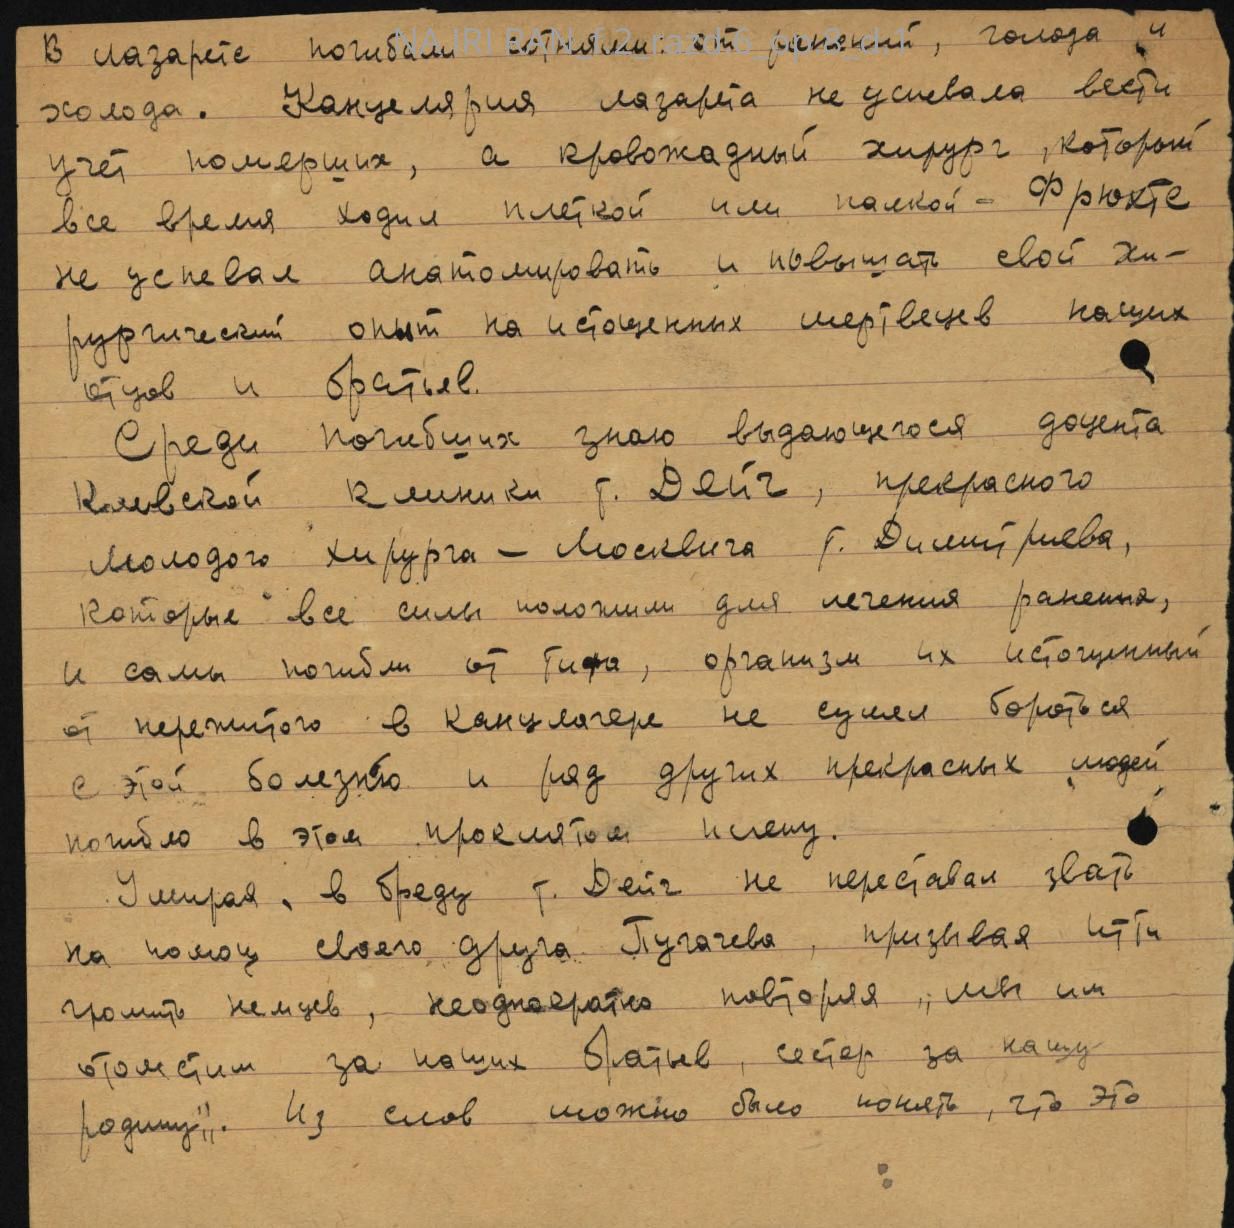 В лазарете погибали сотнями от ранений, голода и
холода. Канцелярия лазарета не успевала вести
учет померших, а кровожадный хирург, который
все время ходил плеткой или палкой - Фрюхте
не успевал анатомировать и повышать свой хи-
рургический опыт на истощенных мертвецев наших
отцов и братьев.
Среди погибших знаю выдающегося доцента
Киевской клиники т. Дейч, прекрасного
молодого хирурга - Москвича т. Димитриева,
которые все силы положили для лечения раненых,
и самы погибли от тифа, организм их истощенный
от пережитого в канцлагере не сумел бороться
с этой болезнью и ряд других прекрасных людей
погибло в этом проклятом плену.
Умирая, в бреду т. Дейч не переставал звать
на помощ своего друга Пугачева, призывая итти
громить немцев, неоднократно повторяя „мы им
отомстим за наших братьев, сестер за нашу
родину". Из слов можно было понять, что это